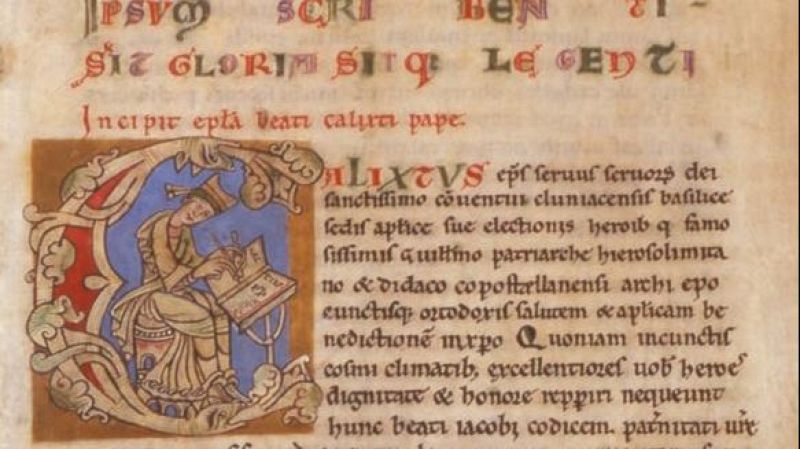 Ipsum scribenti-
sit gloria sitq; legenti
Incipit epła beati calixti pape.
CALIXTVS eps seruus seruorꝫ dei
sanctissimo cōuentui cluniacensis basilice
sedis aplice sue electionis heroib; q famo
sissimis guillmo patriarche hierosolimita
no & didaco copostellanensi archi epo
cunctisq; ortodoxis salutem & aplicam be
nedictionē inxpo Quoniam incunctis
cosmi climatib; excellentiores uob heroes
dignitate & honore repperiri nequeunt
hunc beati iacobi codicem. pat̄nitati ur̄e